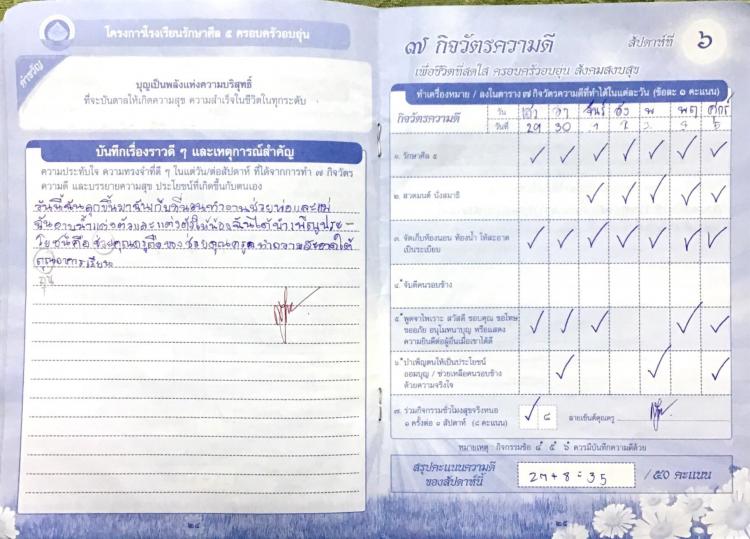 โครงการโรงเรียนรักษาศีล ๕ ครอบครัวอบอุ่น
คำขวัญ
บุญเป็นพลังแห่งความบริสุทธิ์
ที่จะบันดาลให้เกิดความสุข ความสำเร็จในชีวิตในทุกระดับ
บันทึกเรื่องราวดี ๆ และเหตุการณ์สำคัญ
ความประทับใจ ความทรงจำที่ดี ๆ ในแต่วัน/ต่อสัปดาห์ ที่ได้จากการทำ ๗ กิจวัตร
ความดี และบรรยายความสุข ประโยชน์ที่เกิดขึ้นกับตนเอง
วันนี้ฉันลุกขึ้นมาฉันเก็บที่นอนทำงานช่วยพ่อและแม่
ฉันอาบน้ำแต่งตัวและแต่งตัวให้น้องฉันได้บำเพ็ญประ-
โยชน์คือช่วยคุณครูถือของช่วยคุณครูทำความสะอาดใต้
อาคารเรียน
๒๔
๗ กิจวัตรความดี สัปดาห์ที่ ๖
เพื่อชีวิตที่สดใส ครอบครัวอบอุ่น สังคมสงบสุข
ทำเครื่องหมาย / ลงในตาราง ๗ กิจวัตรความดีที่ทำได้ในแต่ละวัน (ข้อละ ๑ คะแนน)
กิจวัตรความดี วัน เสาร์ อา จันทร์ อัง พ พฤ ศุกร์
วันที่ 29 30 1 2 3 5
๑. รักษาศีล ๕
๒. สวดมนต์ นั่งสมาธิ
๓. จัดเก็บห้องนอน ห้องน้ำ ให้สะอาด
เป็นระเบียบ
๔. จับดีคนรอบข้าง
๕. พูดจาไพเราะ สวัสดี ขอบคุณ ขอโทษ
ขออภัย อนุโมทนาบุญ หรือแสดง
ความยินดีต่อผู้อื่นเมื่อเขาได้ดี
๖. บำเพ็ญตนให้เป็นประโยชน์
ออมบุญ / ช่วยเหลือคนรอบข้าง
ด้วยความจริงใจ
๗. ร่วมกิจกรรมชั่วโมงสุขจริงหนอ
๑ ครั้งต่อ ๑ สัปดาห์ (๘ คะแนน)
๘ ลายเซ็นต์คุณครู
หมายเหตุ : กิจกรรมข้อ ๔ ๕ ๖ ควรมีบันทึกความดีด้วย
สรุปคะแนนความดี
ของสัปดาห์นี้ 27+8=35 / ๕๐ คะแนน
๒๕